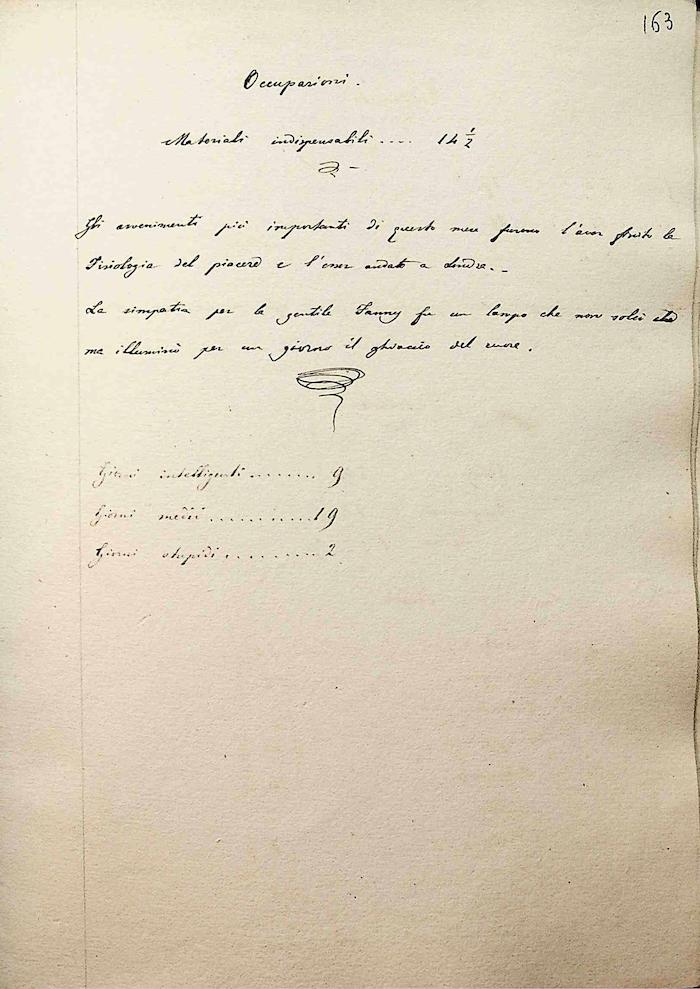 163
Occupazioni.
Materiali indispensabili .... 14 1/2
Gli avvenimenti più importanti di questo mese furono l'aver finito la
Fisiologia del piacere e l'esser andato a Londra. _
La simpatia per la gentile Fanny fu un lampo che non solcò
ma illuminò per un giorno il ghiaccio del cuore.
Giorni intelligenti ....... 9
Giorni medii .......... 19
Giorni stupidi ......... 2